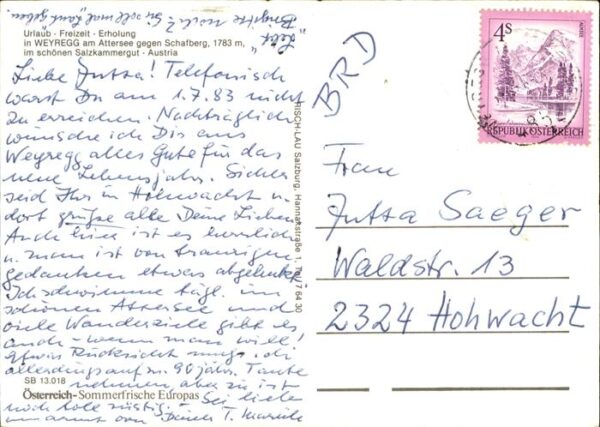 Urlaub - Freizeit - Erholung
in WEYREGG am Attersee gegen Schafberg, 1783 m,
im schönen Salzkammergut - Austria
Liebe Jutta! Telefonisch
warst Du am 1.7.83 nicht
zu erreichen. Nachträglich
wünsche ich Dir aus
Weyregg alles Gute für das
neue Lebensjahr. Sicher
seid Ihr in Hohwacht u.
dort grüsse alle Deine Lieben
Auch hier ist es herrlich
u. man ist von traurigen
gedanken etwas abgelenkt
Ich schwimme tägl. im
schönen Attersee und
viele Wanderziele gibt es
auch - wenn man will!
Etwas Rücksicht muss ich
allerdings auf m. 90jähr. Tante
nehmen aber sie ist
noch tolle rüstig. - Sei liebe
umarmt von Deiner T.
SB 13.018
Österreich - Sommerfrische Europas
RISCH-LAU Salzburg, Hannakstraße 1, Tel. 7 64 30
BRD
4S
REPUBLIK ÖSTERREICH
Frau
Jutta Saeger
Waldstr. 13
2324 Hohwacht